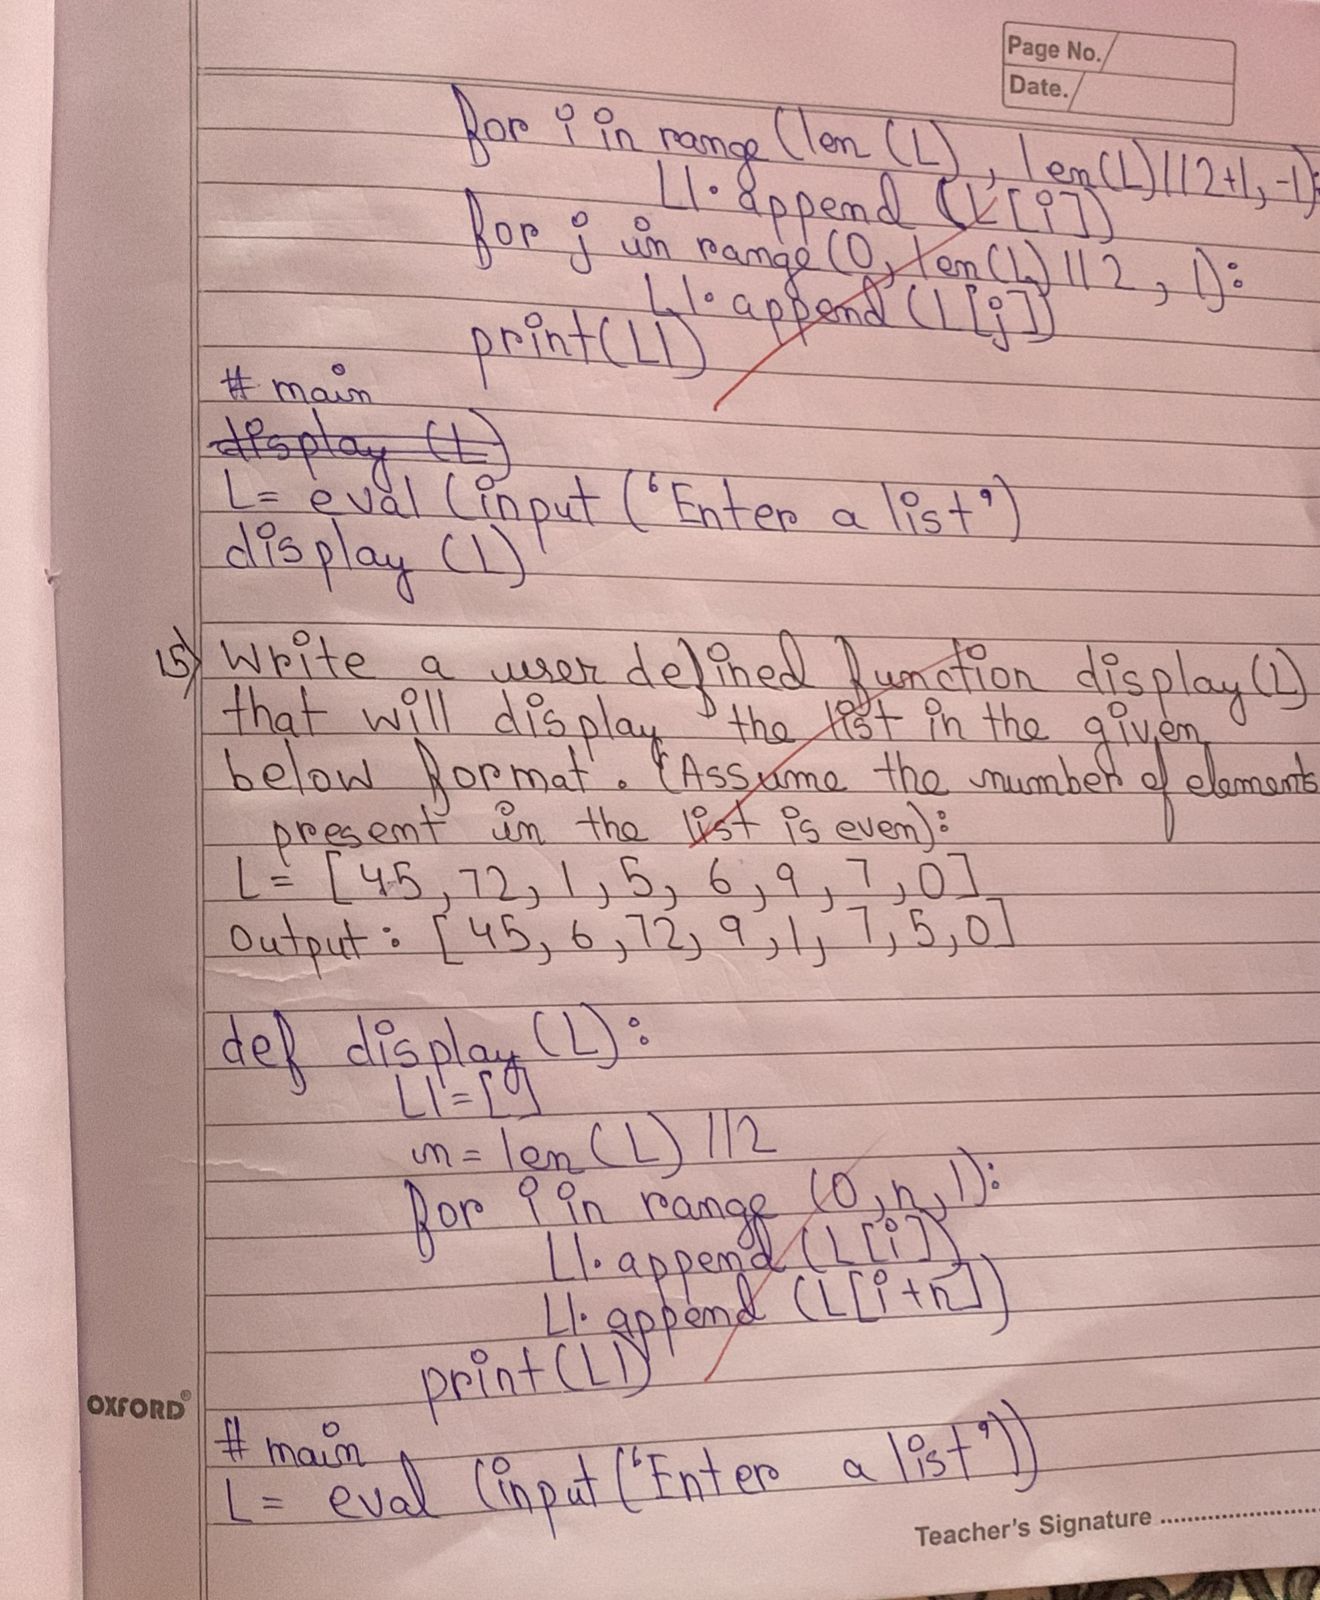 Page No.
Date.
for i in range (len (L), len(L)//2+1, -1):
L1.append (L[i])
for j in range (0, len(L)//2, 1):
L1.append (L[j])
print(L1)
# main
display (L)
L= eval (input ('Enter a list')
display (L)
15) Write a user defined function display(L)
that will display the list in the given
below format. (Assume the number of elements
present in the list is even):
L= [45, 72, 1, 5, 6, 9, 7, 0]
Output: [45, 6, 72, 9, 1, 7, 5, 0]
def display (L):
L1=[]
n= len (L) //2
for i in range (0, n, 1):
L1.append (L[i])
L1.append (L[i+n])
print(L1)
OXFORD®
# main
L= eval (input ('Enter a list'))
Teacher's Signature ....................